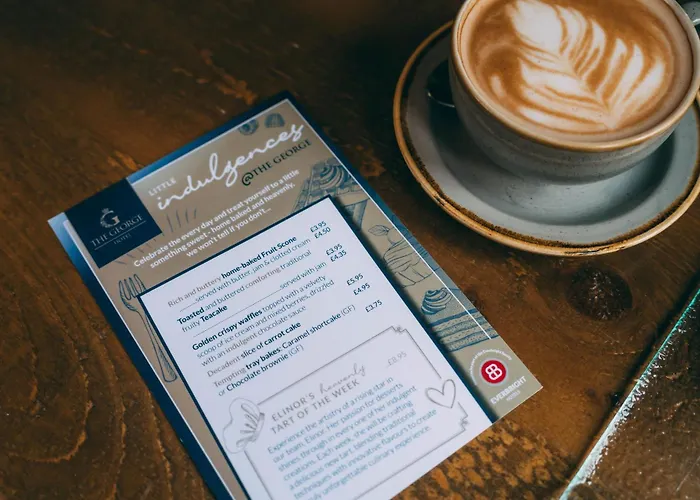 LITTLE
indulgences
@THE GEORGE
THE GEORGE
HOTEL
Celebrate the every day and treat yourself to a little
something sweet - home baked and heavenly.
we won't tell if you don't...
Rich and buttery home-baked Fruit Scone £3.95
served with butter, jam & clotted cream £4.50
Toasted and buttered comforting traditional
fruity Teacake £3.95
served with jam £4.35
Golden crispy waffles topped with a velvety
scoop of ice cream and mixed berries, drizzled
with an indulgent chocolate sauce £5.95
Decadent slice of carrot cake £4.95
Tempting tray bakes: Caramel shortcake (GF)
or Chocolate brownie (GF) £3.75
ELINOR'S heavenly
TART OF THE WEEK £8.95
Experience the artistry of a rising star in
our team, Elinor. Her passion for desserts
shines through in every one of her indulgent
creations. Each week, she will be crafting
a delicious new tart, blending traditional
techniques with innovative flavours to create
unforgettable culinary experience.
EVERBRIGHT
HOTELS